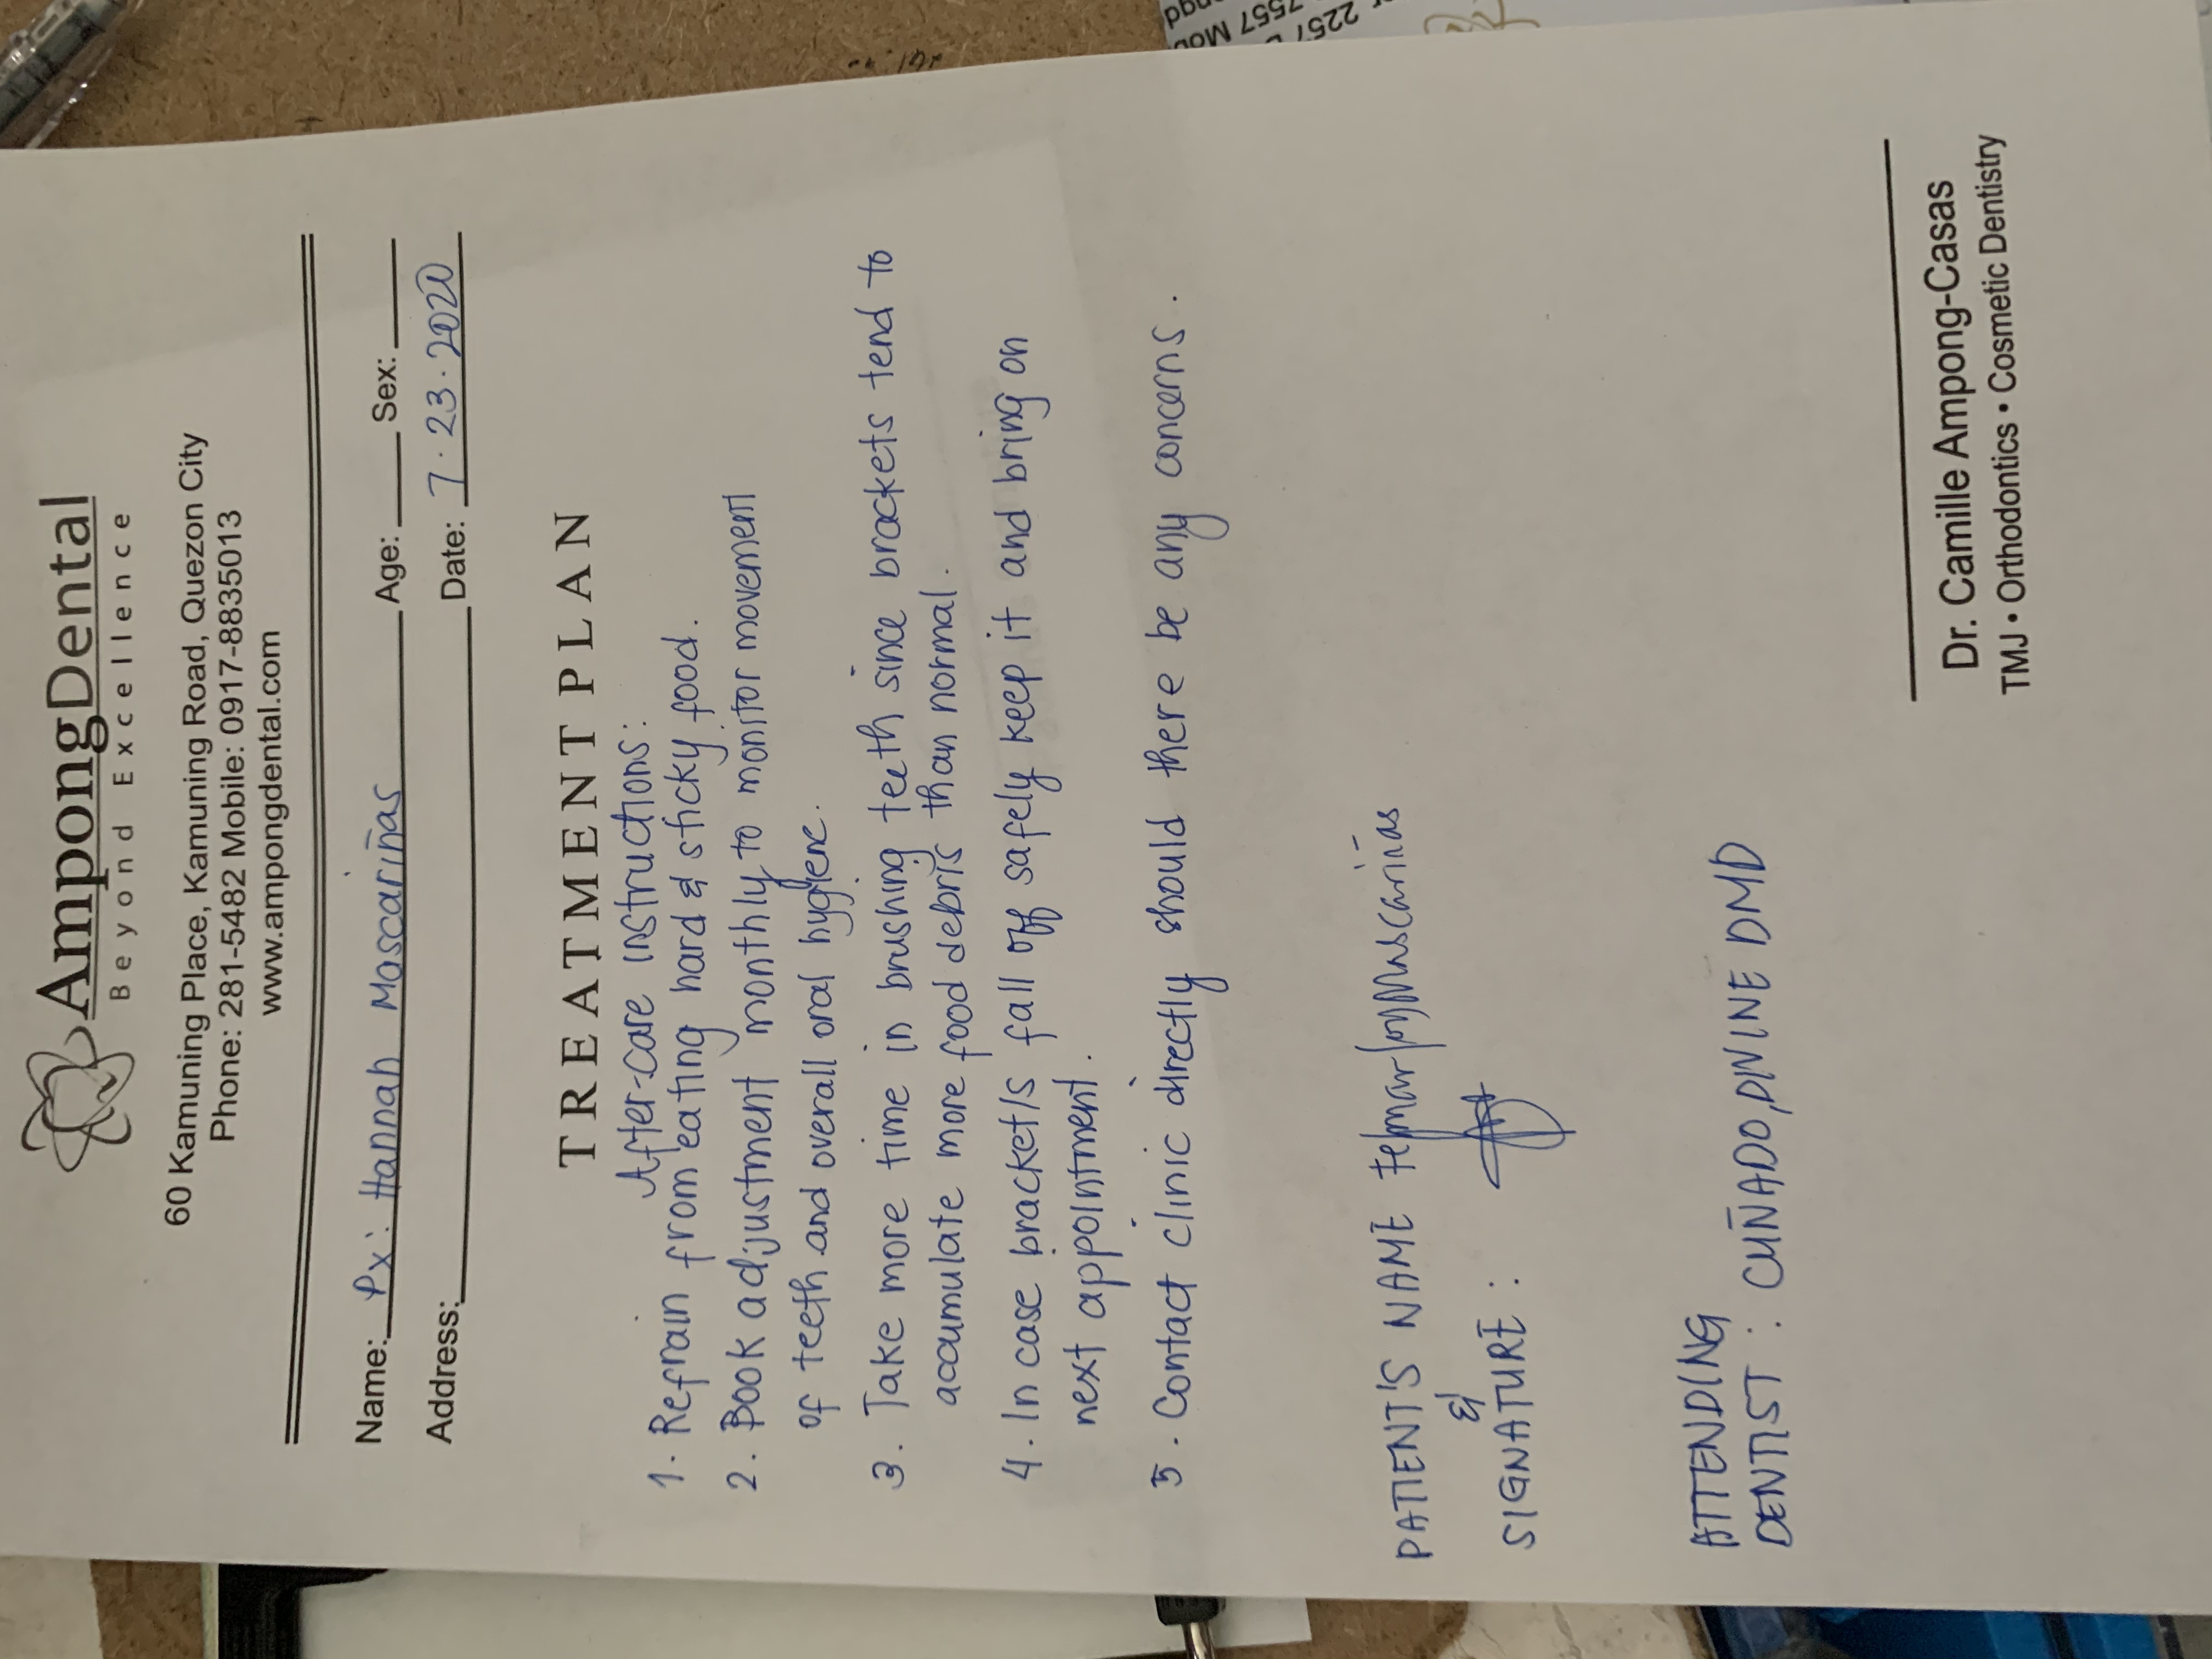 AmpongDental
Beyond Excellence
60 Kamuning Place, Kamuning Road, Quezon City
Phone: 281-5482 Mobile: 0917-8835013
www.ampongdental.com
Name: Px: Hannah Mascariñas Age: Sex:
Address: Date: 7.23.2020
TREATMENT PLAN
After-care instructions:
1. Refrain from eating hard & sticky food.
2. Book adjustment monthly to monitor movement
of teeth and overall oral hygiene.
3. Take more time in brushing teeth since brackets tend to
accumulate more food debris than normal.
4. In case bracket/s fall off safely keep it and bring on
next appointment.
5. Contact clinic directly should there be any concerns.
PATIENT'S NAME Mascariñas
&
SIGNATURE :
ATTENDING
DENTIST : CUÑADO, DIVINE DMD
Dr. Camille Ampong-Casas
TMJ • Orthodontics • Cosmetic Dentistry
2257
7557 Mob